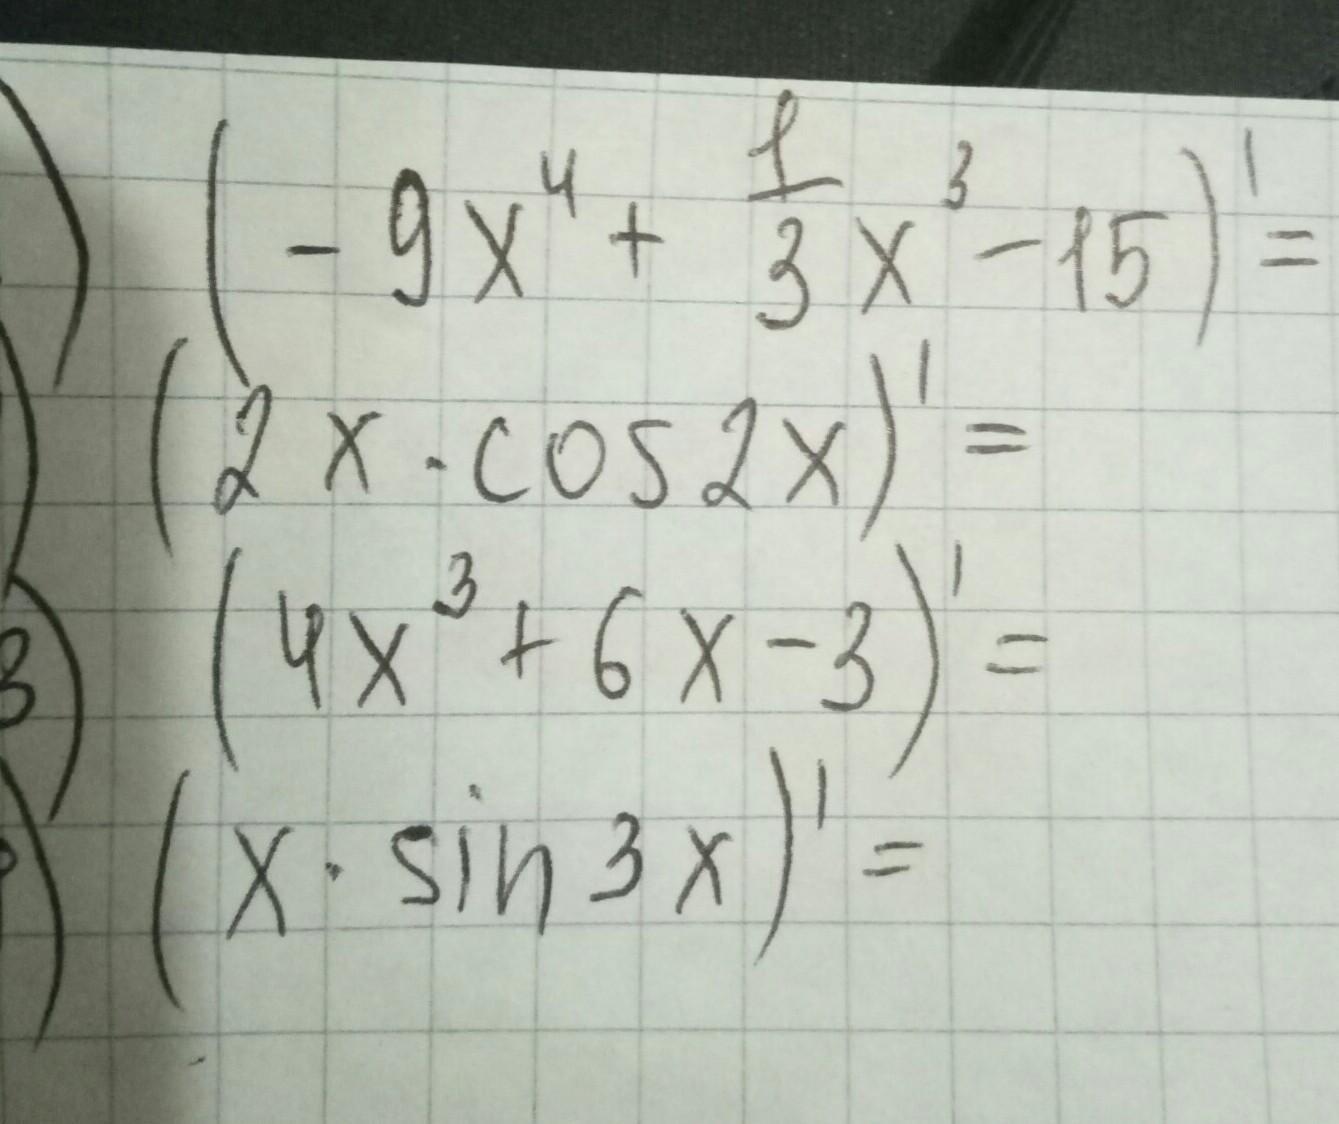 ) (-9x⁴ + 1/3 x³ - 15)' =
) (2x · cos2x)' =
3) (4x³ + 6x - 3)' =
) (x · sin3x)' =